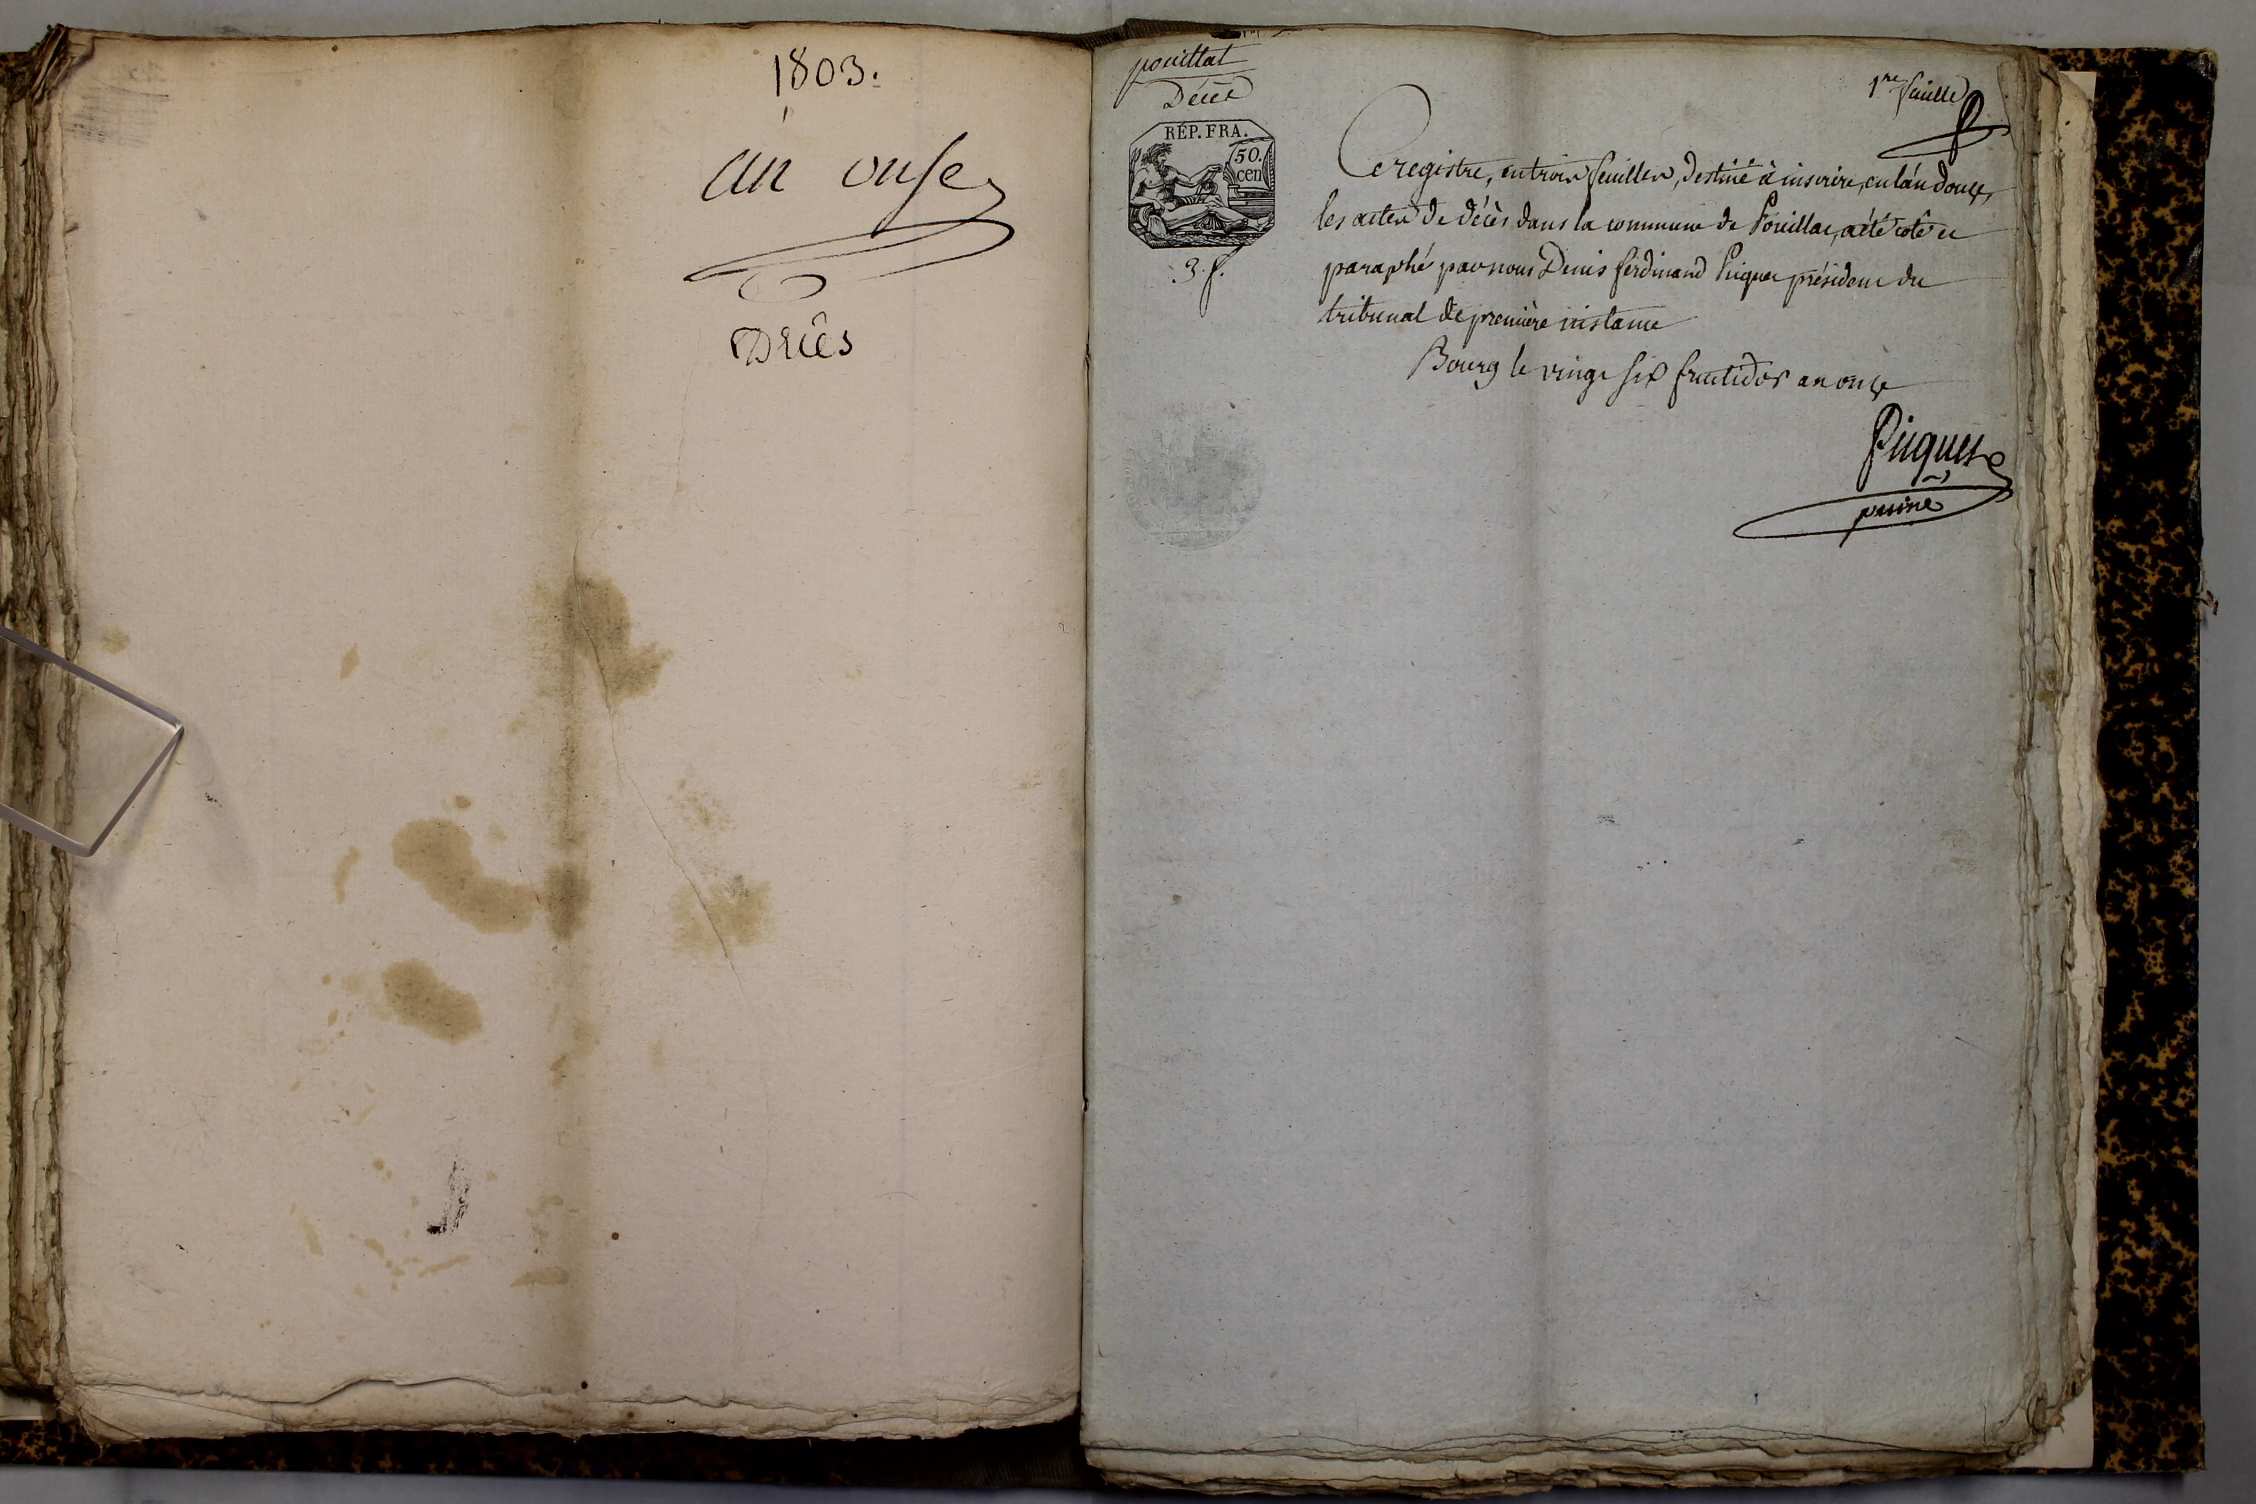 1803.
an onze
Décès
pouillat
Décès
1re feuille
RÉP. FRA.
50.
cen
3. f.
Ce registre, en trois feuilles, destiné à inscrire, en l'an douze,
les actes de décès dans la commune de Pouillat, a été coté et
paraphé par nous Denis ferdinand Picquet président du
tribunal de première instance
Bourg le vingt six fructidor an onze
Picquet
puiné